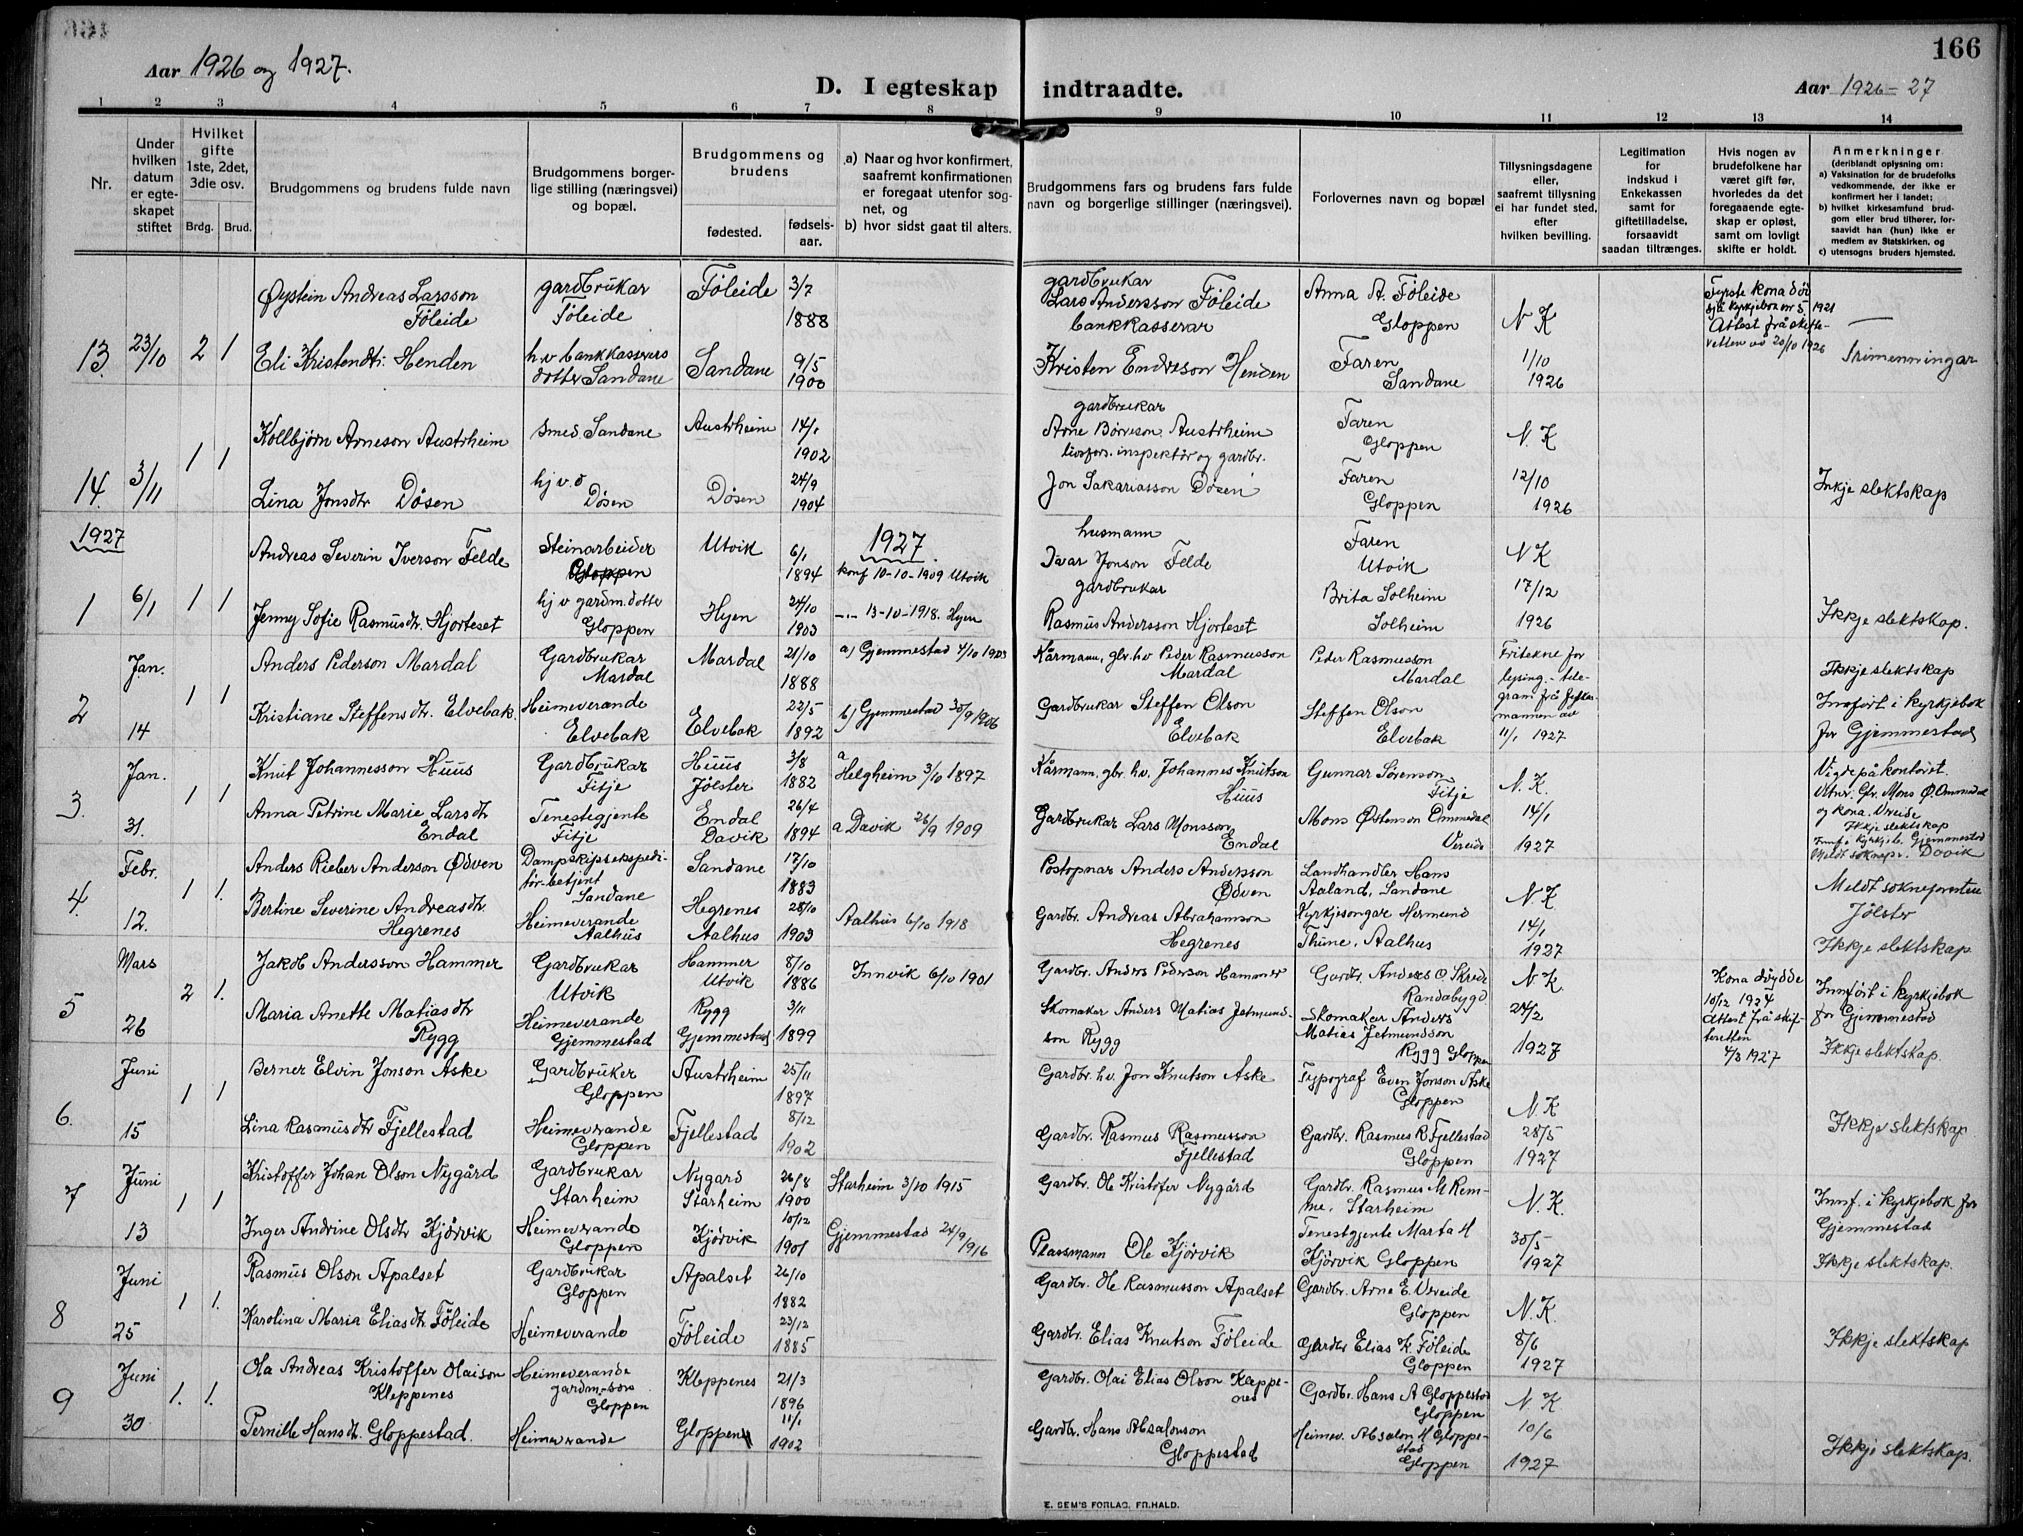 166
Aar 1926 og 1927.
D. I egteskap indtraadte.
Aar 1926-27
1 2 3 4 5 6 7 8 9 10 11 12 13 14
Nr.
Under hvilken datum er egteskapet stiftet
Hvilket gifte 1ste, 2det, 3die osv.
Brdg. Brud.
Brudgommens og brudens fulde navn
Brudgommens borgerlige stilling (næringsvei) og bopæl.
Brudgommens og brudens
fødested.
fødselsaar.
a) Naar og hvor konfirmert, saafremt konfirmationen er foregaat utenfor sognet, og
b) hvor sidst gaat til alters.
Brudgommens fars og brudens fars fulde navn og borgerlige stillinger (næringsvei).
Forlovernes navn og bopæl
Tillysningsdagene eller, saafremt tillysning ei har fundet sted, efter hvilken bevilling.
Legitimation for indskud i Enkekassen samt for giftetilladelse, forsaavidt saadan tiltrænges.
Hvis nogen av brudefolkene har været gift før, hvorledes da det foregaaende egteskap er opløst, samt om lovligt skifte er holdt.
Anmerkninger
(deriblandt oplysning om:
a) Vaksination for de brudefolks vedkommende, der ikke er konfirmert her i landet;
b) hvilket kirkesamfund brudgom eller brud tilhører, forsaavidt han (hun) ikke er medlem av Statskirken, og
c) utensogns bruders hjemsted.
13. 23/10 2 1
Øystein Andreas Larsson Føleide
gardbrukar Føleide
Føleide 3/7 1888
gardbrukar Lars Andersson Føleide bankkasserar
Anna A. Føleide Gloppen
N K
Fyrste kona død
Attest frå skifteretten
20/10 1926
Eli Kristendtr. Henden
h.v bankkasserers dotter Sandane
Sandane 9/5 1900
Kristen Endreson Henden
Faren Sandane
1/10 1926
Trimenningar
14. 3/11 1 1
Kollbjørn Arneson Austrheim
smed Sandane
Austrheim 14/1 1902
gardbrukar Arne Børreson Austrheim
Faren Gloppen
N. K
Lina Jonsdtr Døsen
hj v. ó Døsen
Døsen 24/9 1904
livsfors. inspektør og gardbr. Jon Sakariasson Døsen
Faren Gloppen
12/10 1926
Inkje slektskap
1927
1927.
1 6/1 1 1
Andreas Severin Iverson Felde
Steinarbeider Gloppen
Utvik 6/1 1894
konf 10-10-1909 Utvik
husmann Ivar Jonson Felde
Faren Utvik
N K
Jenny Sofie Rasmusdtr. Hjorteset
hj v gardm. dotter Gloppen
Hyen 24/10 1903
-"- 13-10-1918. Hyen
gardbrukar Rasmus Andersson Hjorteset
Brita Solheim Solheim
17/12 1926
Ikkje slektskap.
2 Jan. 14 1 1
Anders Pederson Mardal
Gardbrukar Mardal
Mardal 21/10 1888
a) Gjemmestad 4/10 1903
Kårmann, gbr. hv Peder Rasmusson Mardal
Peder Rasmusson Mardal
Fritekne for lysing. - telegram frå
11/1 1927
Ikkje slektskap
Kristiane Steffensdtr. Elvebak.
Heimeverande Elvebak
Elvebak 22/5 1892
b) Gjemmestad 30/9 1906
Gardbrukar Steffen Olson Elvebak
Steffen Olson Elvebak
Innført i kyrkjebok for Gjemmestad
3. Jan. 31. 1 1
Knut Johannesson Huus
Gardbrukar Fitje
Huus Jølster 3/8 1882
a Helgheim 3/10 1897
Kårmann, gbr. hv. Johannes Knutson Huus
Gunnar Sørenson Fitje
N. K.
Vigde på kontoret.
Vitnr. Gbr. Mons Ø. Ommedal og kona. Vereide
Anna Petrine Marie Larsdtr Endal
Tenestegjente Fitje
Endal Davik 26/4 1894
a Davik 26/9 1909
Gardbrukar Lars Monsson Endal
Mons Østenson Ommedal Vereide
14/1 1927
Ikkje slektskap
Innf. i kyrkjeb. Gjemmestad
Meldt soknepr. Davik
4. Febr. 12. 1 1.
Anders Rieber Anderson Ødven
Dampskipsekspeditør-betjent Sandane
Sandane 17/10 1883
Postopnar Anders Andersson Ødven
Landhandler Hans Aaland, Sandane
N K
Meldt soknepresten Jølster
Bertine Severine Andreasdtr. Hegrenes
Heimeverande Aalhus
Hegrenes Aalhus 28/10 1903
Aalhus 6/10 1918
Gardbr. Andreas Abrahamson Hegrenes
Kyrkjesongar Hermund Thune, Aalhus
14/1 1927
Ikkje slektskap
5 Mars 26 2 1.
Jakob Andersson Hammer
Gardbrukar Utvik
Hammer Utvik 8/10 1886
Innvik 6/10 1901
Gardbr. Anders Pederson Hammer
Gardbr. Anders O Skrede Randabygd
N K.
Kona døydde 10/12 1924
Attest frå skifteretten 4/3 1927
Innført i kyrkjebok for Gjemmestad
Maria Anette Matiasdtr Rygg
Heimeverande Gjemmestad
Rygg Gjemmestad 3/11 1899
Skomaker Anders Matias Jetmundson Rygg
Skomaker Anders Matias Jetmundson Rygg Gloppen
24/2 1927
Ikkje slektskap.
6. Juni 15 1 1
Berner Elvin Jonson Aske
Gardbruker Gloppen
Austrheim 25/11 1897
Gardbr. hv. Jon Knutson Aske
Typograf Even Jonson Aske Gloppen
N. K
Lina Rasmusdtr Fjellestad
Heimeverande Gloppen
Fjellestad 8/12 1902
Gardbr. Rasmus Rasmusson Fjellestad
Gardbr. Rasmus R Fjellestad Gloppen
28/5 1927
Ikkje slektskap
7 Juni 13 1 1
Kristoffer Johan Olson Nygård
Gardbrukar Starheim
Nygard Starheim 26/8 1900
Starheim 3/10 1915
Gardbr. Ole Kristofer Nygård
Gardbr. Rasmus M Remme, Starheim
N. K.
Innf. i kyrkjebok for Gjemmestad
Inger Andrine Olsdtr Kjørvik
Heimeverande Gloppen
Kjørvik 10/12 1901
Gjemmestad 24/9 1916
Plassmann Ole Kjørvik
Tenestgjente Marta M Kjørvik Gloppen
30/5 1927
Ikkje slektskap.
8 Juni 25 1 1.
Rasmus Olson Apalset
Gardbrukar Gloppen
Apalset 26/10 1882
Gardbr. Ole Rasmusson Apalset
Gardbr. Arne E. Vereide Gloppen
N. K.
Karolina Maria Eliasdtr Føleide
Heimeverande
Føleide 23/12 1885
Gardbr. Elias Knutson Føleide
Gardbr Elias K. Føleide Gloppen
8/6 1927
Ikkje slektskap
9 Juni 30 1. 1.
Ola Andreas Kristoffer Olaison Kleppenes
Heimeverande gardm.-son Gloppen
Kleppenes 21/3 1896
Gardbr. Olai Elias Olson Kleppenes
Gardbr. Hans A Gloppestad Gloppen
N. K
Pernille Hansdtr. Gloppestad.
Heimeverande
Gloppen 11/1 1902
Gardbr. Hans Absalonson Gloppestad
Heimev. Absalon H Gloppestad Gloppen
10/6 1927
Ikkje slektskap.
E. SEM'S FORLAG, FR.HALD.